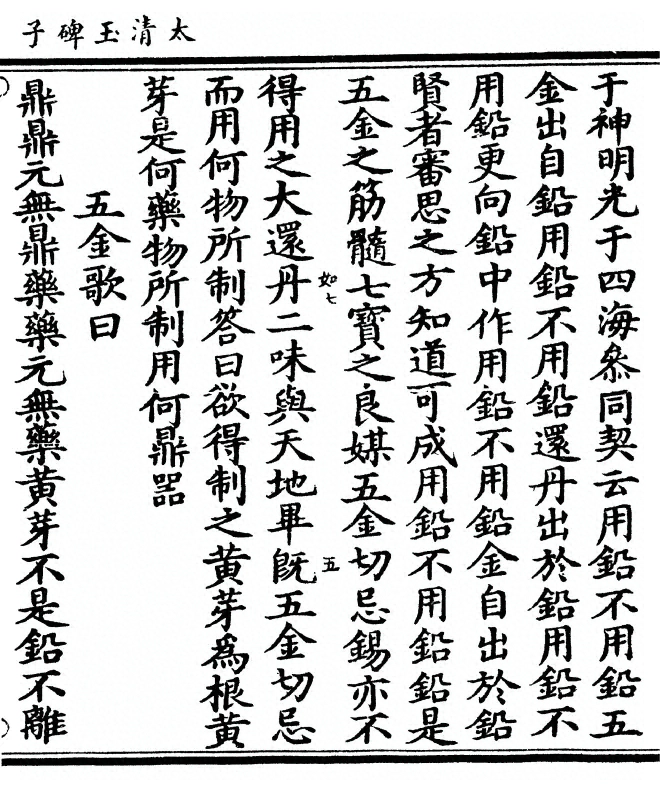 太清玉碑子
于神明光于四海叅同契云用鉛不用鉛五
金出自鉛用鉛不用鉛還丹出於鉛用鉛不
用鉛更向鉛中作用鉛不用鉛金自出於鉛
賢者審思之方知道可成用鉛不用鉛鉛是
五金之筋髓七寶之良媒五金切忌錫亦不
如七
五
得用之大還丹二味與天地畢旣五金切忌
而用何物所制答曰欲得制之黃芽爲根黃
芽是何藥物所制用何鼎器
五金歌曰
鼎鼎元無鼎藥藥元無藥黃芽不是鉛不離